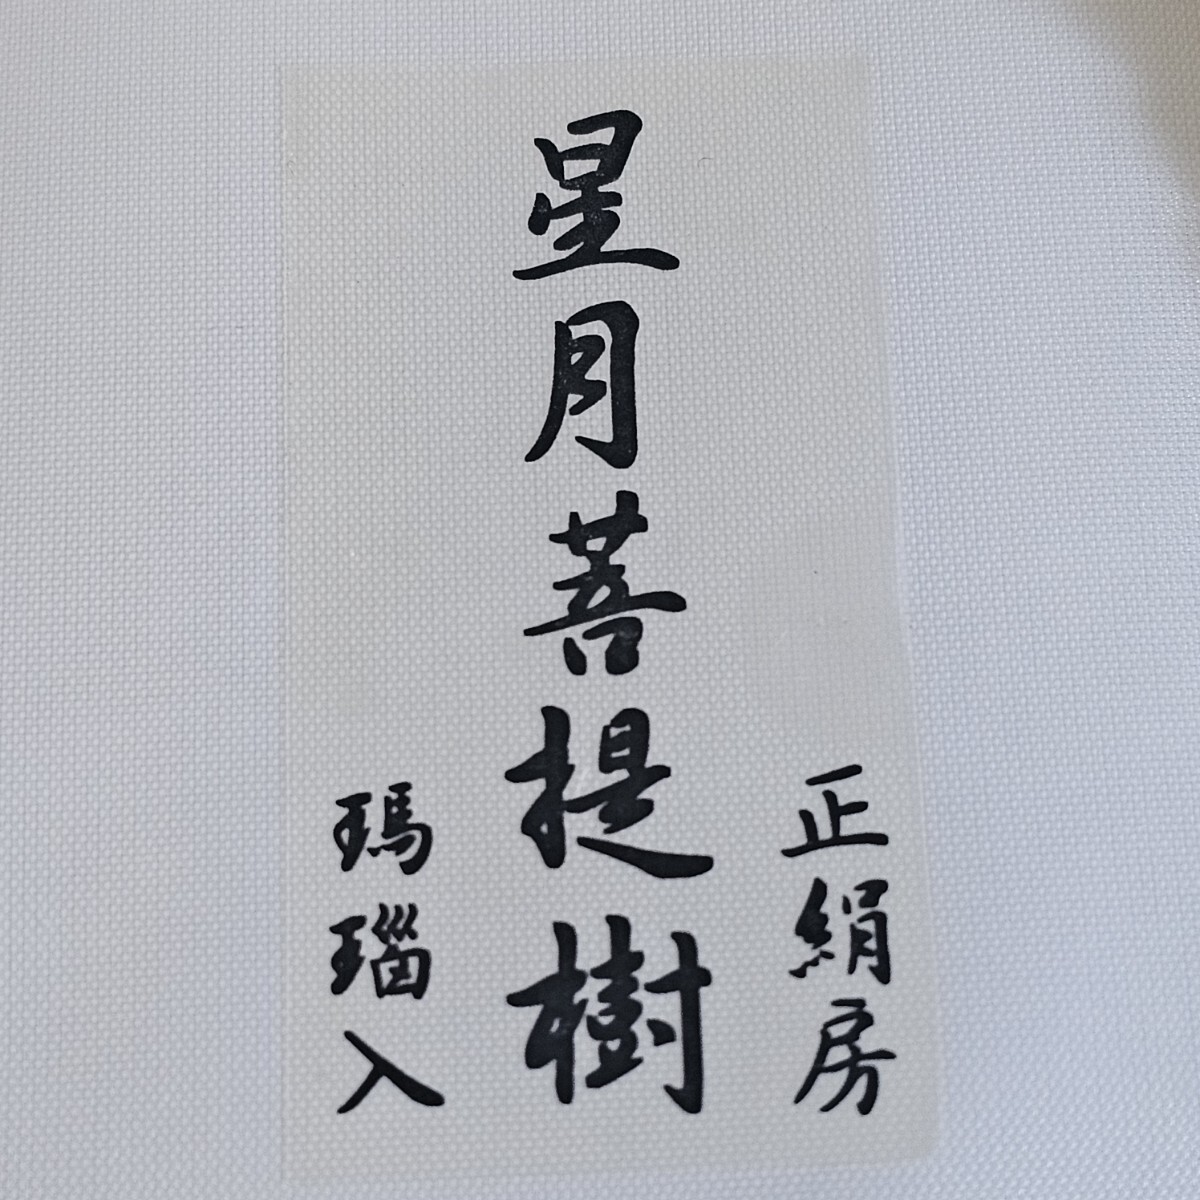 正絹房
星月菩提樹
瑪瑙入